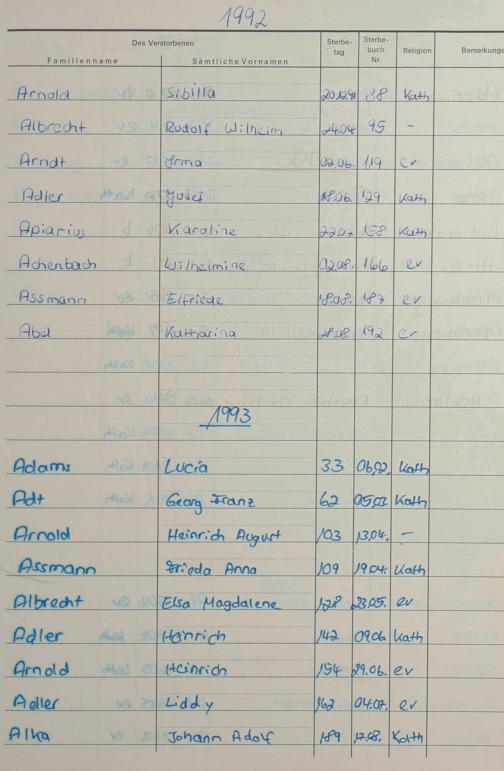 1992
Des Verstorbenen Sterbe- Sterbe- Religion Bemerkunge
Familienname Sämtliche Vornamen tag buch Nr.
Arnold Sibilla 20.12.91 38 Kath
Albrecht Rudolf Wilhelm 24.04. 95 -
Arndt Irma 02.06. 119 ev
Adler Josef 18.06. 129 Kath
Apiarius Karoline 22.07 158 Kath
Achenbach Wilhelmine 02.08. 166 ev
Assmann Elfriede 18.08. 187 ev
Abel Katharina 28.08. 192 ev
1993
Adams Lucia 33 Kath
Adt Georg Franz 62 05.03. Kath
Arnold Heinrich August 103 13.04. -
Assmann Frieda Anna 109 19.04. Kath
Albrecht Elsa Magdalene 128 23.05. ev
Adler Heinrich 142 09.06 Kath
Arnold Heinrich 154 29.06. ev
Adler Liddy 162 04.07. ev
Alka Johann Adolf 189 17.08. Kath